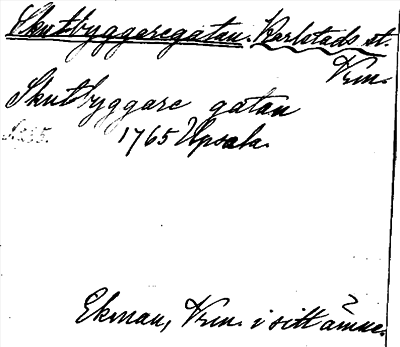 Skutbyggaregatan. Karlstads st.
Vrm.
Skutbyggare gatan
1765 Upsala.
Ekman, Vrm. i sitt ämne.
2